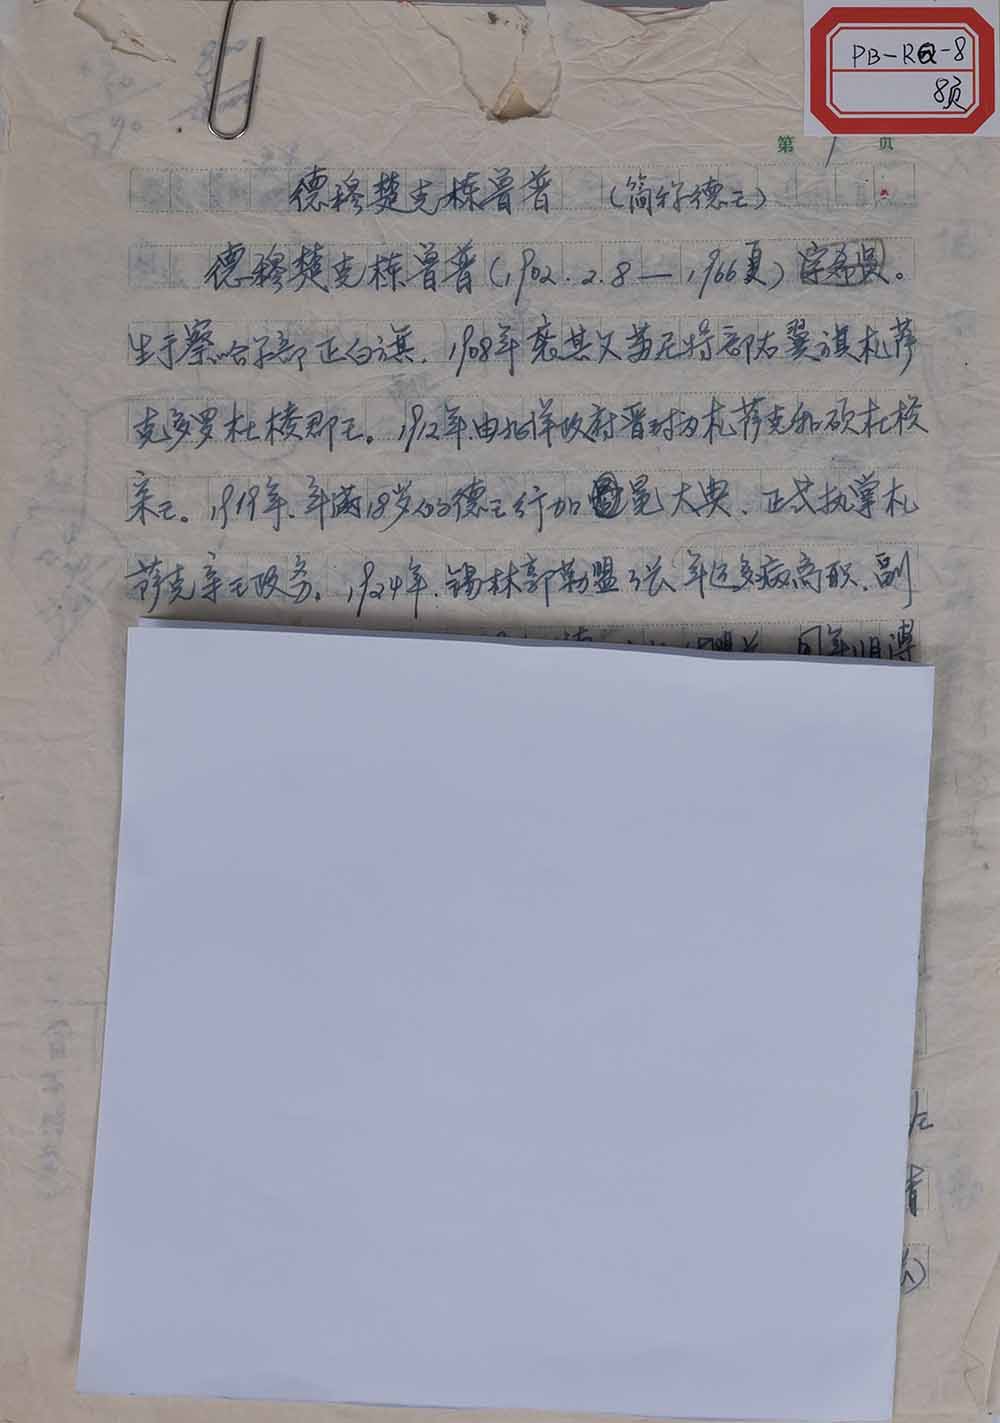 PB-RQ-8
8页
第 1 页
德穆楚克栋鲁普 (简称德王)
德穆楚克栋鲁普(1902.2.8—1966夏)字希贤。
生于察哈尔部正白旗. 1908年袭其父苏尼特部右翼旗札萨
克多罗杜棱郡王。1912年.由北洋政府晋封为札萨克和硕杜棱
亲王。1919年.年满18岁的德王行加冕大典、正式执掌札
萨克亲王政务。1924年.锡林郭勒盟盟长年迈多病离职.副
同年11月